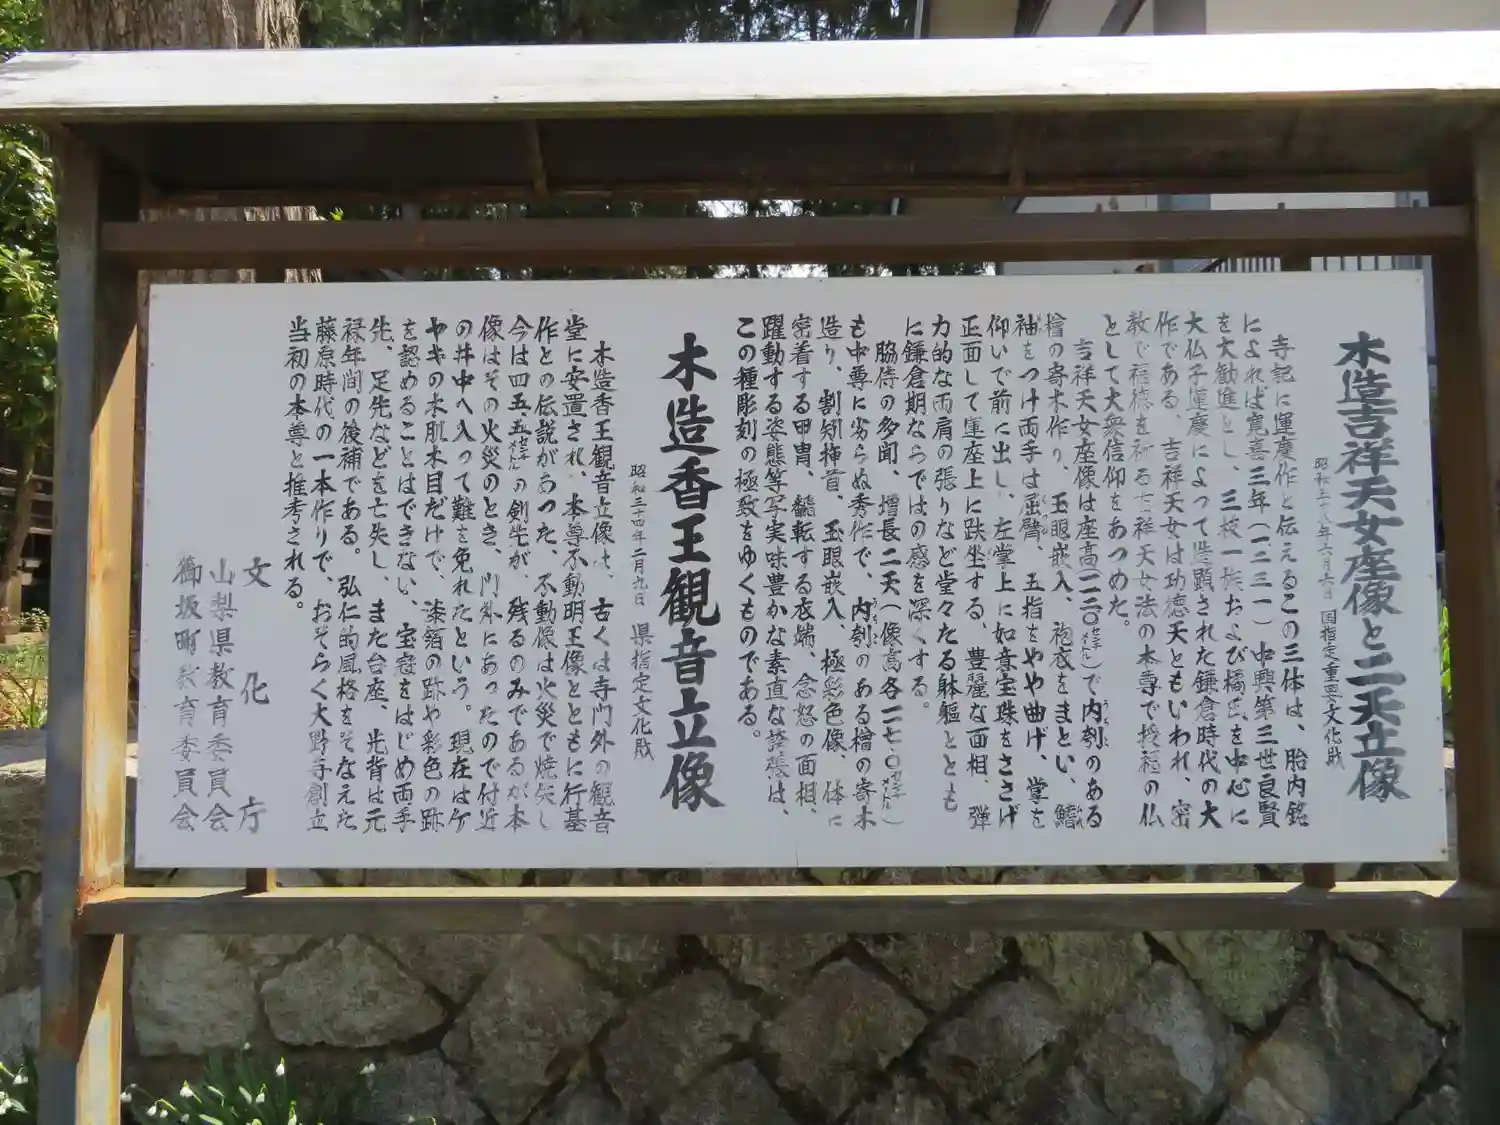 木造吉祥天女座像と二天立像
昭和三十八年六月六日 国指定重要文化財
寺記に運慶作と伝えるこの三体は、胎内銘
によれば寛喜三年(一二三一)中興第三世良賢
を大勧進とし、三枝一族および橘氏を中心に
大仏子運慶によって造顕された鎌倉時代の大
作である。吉祥天女は功徳天ともいわれ、密
教で福徳を祈る吉祥天女法の本尊で授福の仏
として大衆信仰をあつめた。
吉祥天女座像は座高一二〇センチメートル)で内刳のある
檜の寄木作り、玉眼嵌入、袍衣をまとい、鰭
袖をつけ両手は屈臂、五指をやや曲げ、掌を
仰いで前に出し、左掌上に如意宝珠をささげ
正面して蓮座上に趺坐する。豊麗な面相、弾
力的な両肩の張りなど堂々たる躰軀ととも
に鎌倉期ならではの感を深くする。
脇侍の多聞、増長二天(像高各一七〇センチメートル)
も中尊に劣らぬ秀作で、内刳のある檜の寄木
造り、割矧挿首、玉眼嵌入、極彩色像、体に
密着する甲冑、飜転する衣端、忿怒の面相、
躍動する姿態等写実味豊かな素直な誇張は、
この種彫刻の極致をゆくものである。
木造香王観音立像
昭和三十四年二月九日 県指定文化財
木造香王観音立像は、古くは寺門外の観音
堂に安置され、本尊不動明王像とともに行基
作との伝説があった、不動像は火災で焼失し
今は四五・五センチメートルの剣先が、残るのみであるが本
像はその火災のとき、門外にあったので付近
の井中へ入って難を免れたという。現在はケ
ヤキの木肌木目だけで、漆箔の跡や彩色の跡
を認めることはできない、宝冠をはじめ両手
先、足先などを亡失し、また台座、光背は元
禄年間の後補である。弘仁的風格をそなえた
藤原時代の一本作りで、おそらく大野寺創立
当初の本尊と推考される。
文化庁
山梨県教育委員会
御坂町教育委員会